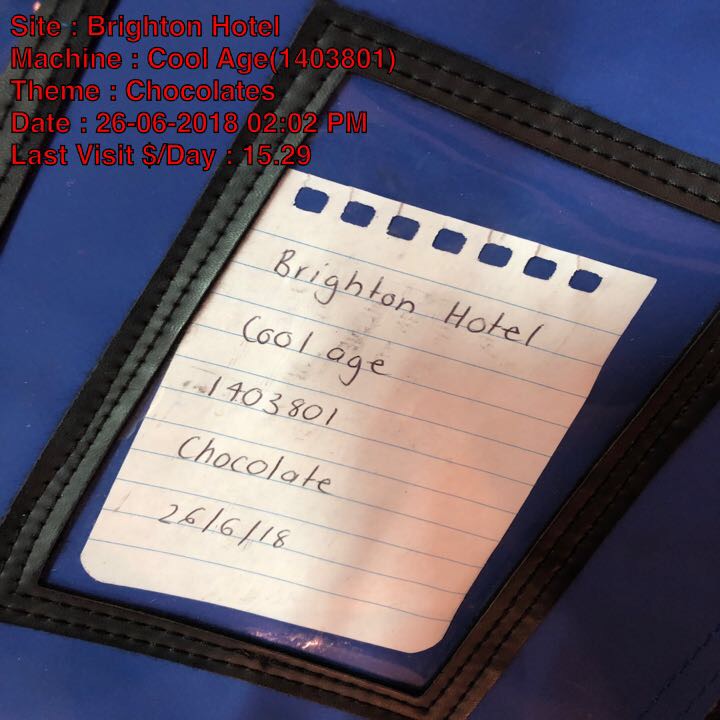 Site : Brighton Hotel
Machine : Cool Age(1403801)
Theme : Chocolates
Date : 26-06-2018 02:02 PM
Last Visit $/Day : 15.29
Brighton Hotel
Cool age
1403801
Chocolate
26/6/18